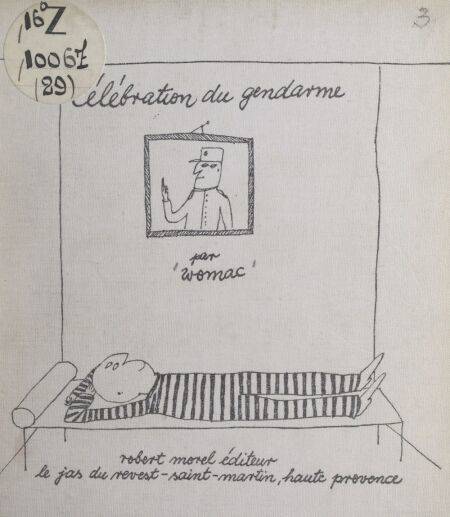 16° Z
10067
(29)
3
Célébration du gendarme
par
"womac"
robert morel éditeur
le jas du revest-saint-martin, haute provence